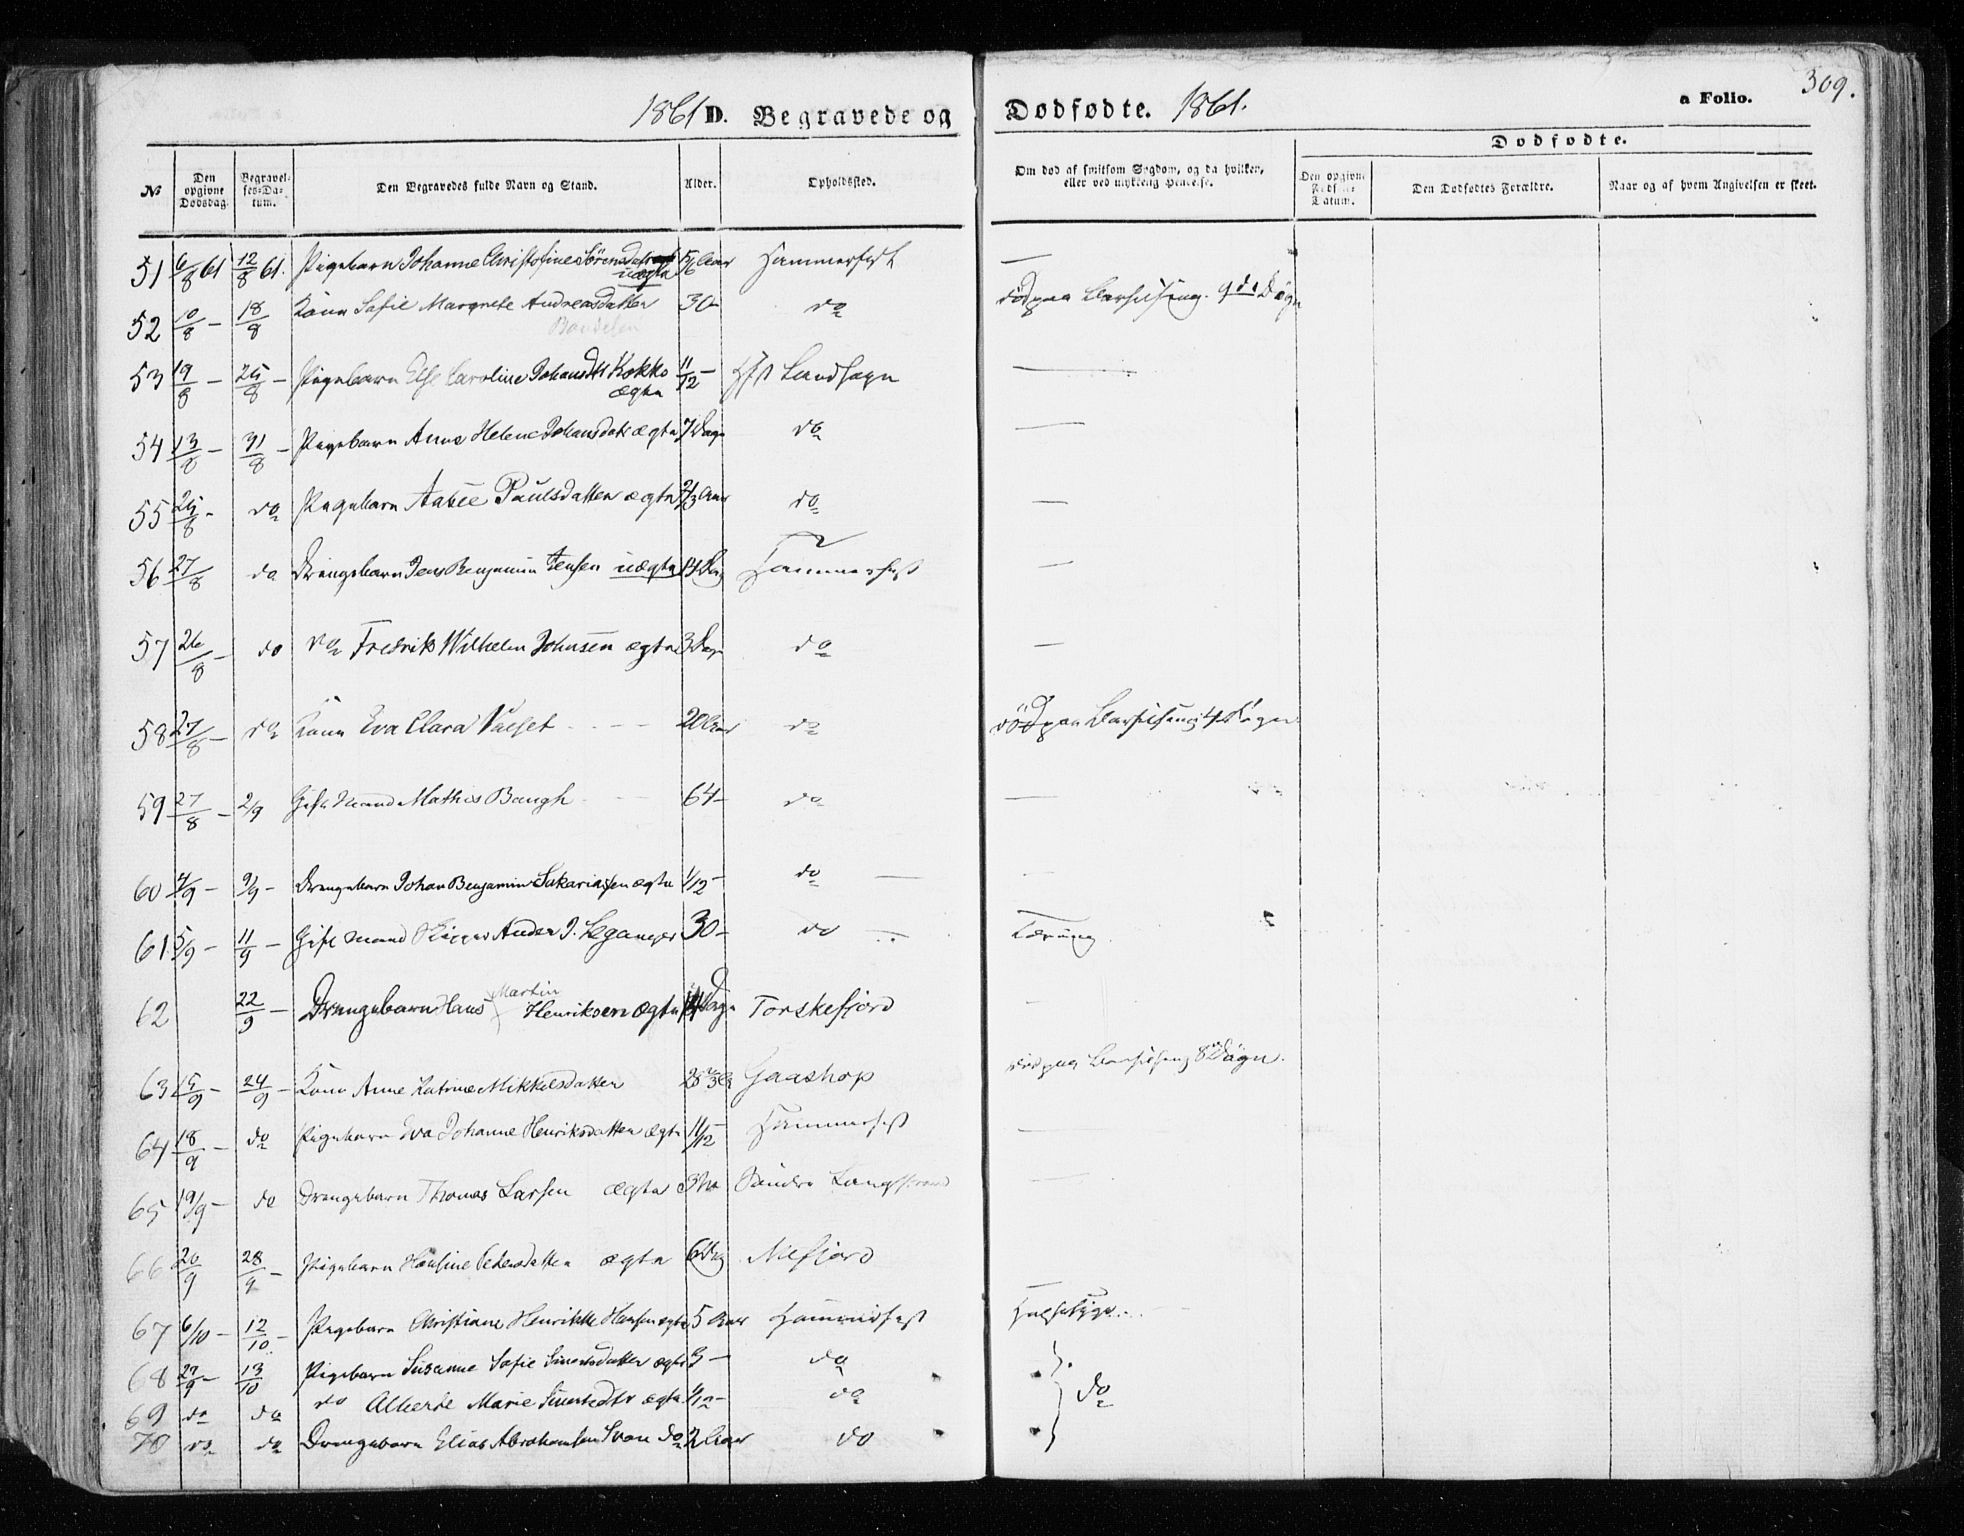 1861 D. Begravede og Dødfødte. 1861.
a Folio. 309.
Dødfødte.
№ Den opgivne Dødsdag. Begravelses-Datum. Den Begravedes fulde Navn og Stand. Alder. Opholdssted. Om død af smitsom Sygdom, og da hvilken, eller ved ulykkelig Hændelse. Den opgivne Fødsels-Datum. Den Dødfødtes Forældre. Naar og af hvem Angivelsen er skeet.
51 6/8 61 12/8 61. Pigebarn Johanne Christofine Sørensdatter 5/6 Aar Hammerfest —
uægte
52 10/8 — 18/8 Kone Sofie Margrete Andreasdatter 30 — do død paa Barselseng. 9de Døgn
53 19/8 — 25/8 — Pigebarn Else Caroline Johansdtr Kokko 11/12 — Hfst Landsogn —
ægte
54 13/8 — 31/8 — Pigebarn Anne Helene Johansdatr ægte 7 Dage do —
55 25/8 - do Pigebarn Aabee Paulsdatter ægte 2/3 Aar do —
56 27/8 do Drengebarn Jens Benjamin Jensen uægte 14 Dag Hammerfest —
57 26/8 — do do Fredrik Wilhelm Johnsen ægte 3 Dage do —
58 27/8 — do Kone Eva Clara 20 Aar do død paa Barselseng 4 Døgn
59 27/8 — 2/9 Gift Mand Mathis Baugh 64 — do —
60 4/9 — 9/9 — Drengebarn Johan Benjamin Sakariassen ægte 1/12 — do —
61 5/9 — 11/9 — Gift Mand Anders J. 30 — do Tæring
62 22/9 — Drengebarn Hans Martin Henriksen ægte 14 Dage Torskefjord -
63 15/9 — 24/9 — Kone Anne Katrine Mikkelsdatter Gaashop død paa Barselseng 8de Døgn.
64 18/9 — do Pigebarn Eva Johanne Henriksdatter ægte 11/12 — Hammerfest —
65 19/9 — do Drengebarn Thomas Larsen ægte Søndre Langstrand —
66 20/9 28/9 — Pigebarn Hansine Pedersdatter ægte 6 Dag Nefjord
67 6/10 — 12/10 — Pigebarn Christiane Henrikke Hansen ægte 5 Aar Hammerfest Halssyge
68 29/9 — 13/10 Pigebarn Susanne Sofie Sivertsdatter ægte 3 — do
69 do do do Alberte Marie Sivertsdtr ægte 1/12 — do do
70 do do Drengebarn Elias Abrahamsen Svan do 2 Aar do